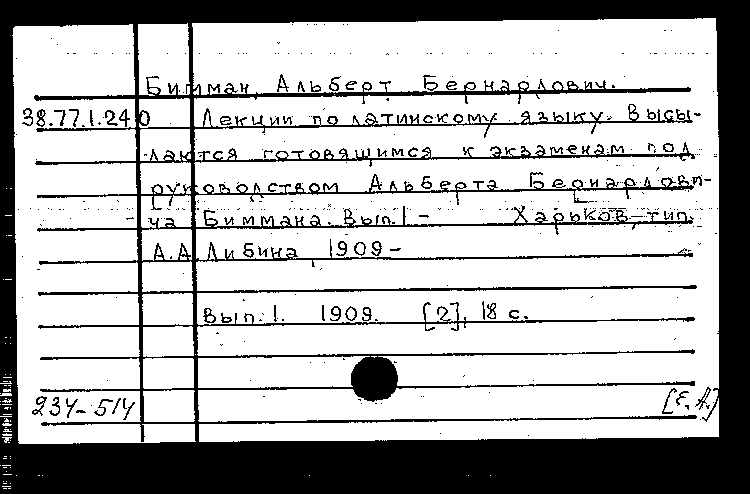 Бимман, Альберт Бернардович.
38.77.1.240 Лекции по латинскому языку. Высы-
лаются готовящимся к экзаменам под
руководством Альберта Бернардови-
ча Биммана. Вып. 1 - Харьков, тип.
А.А. Либина, 1909 -
Вып. 1. 1909. [2], 18 с.
234-514 [Е. А.]